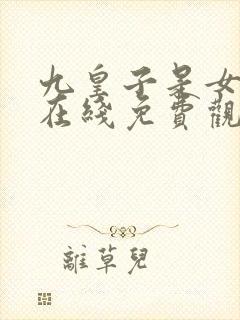 九皇子是女
在綫免費觀
離草兒